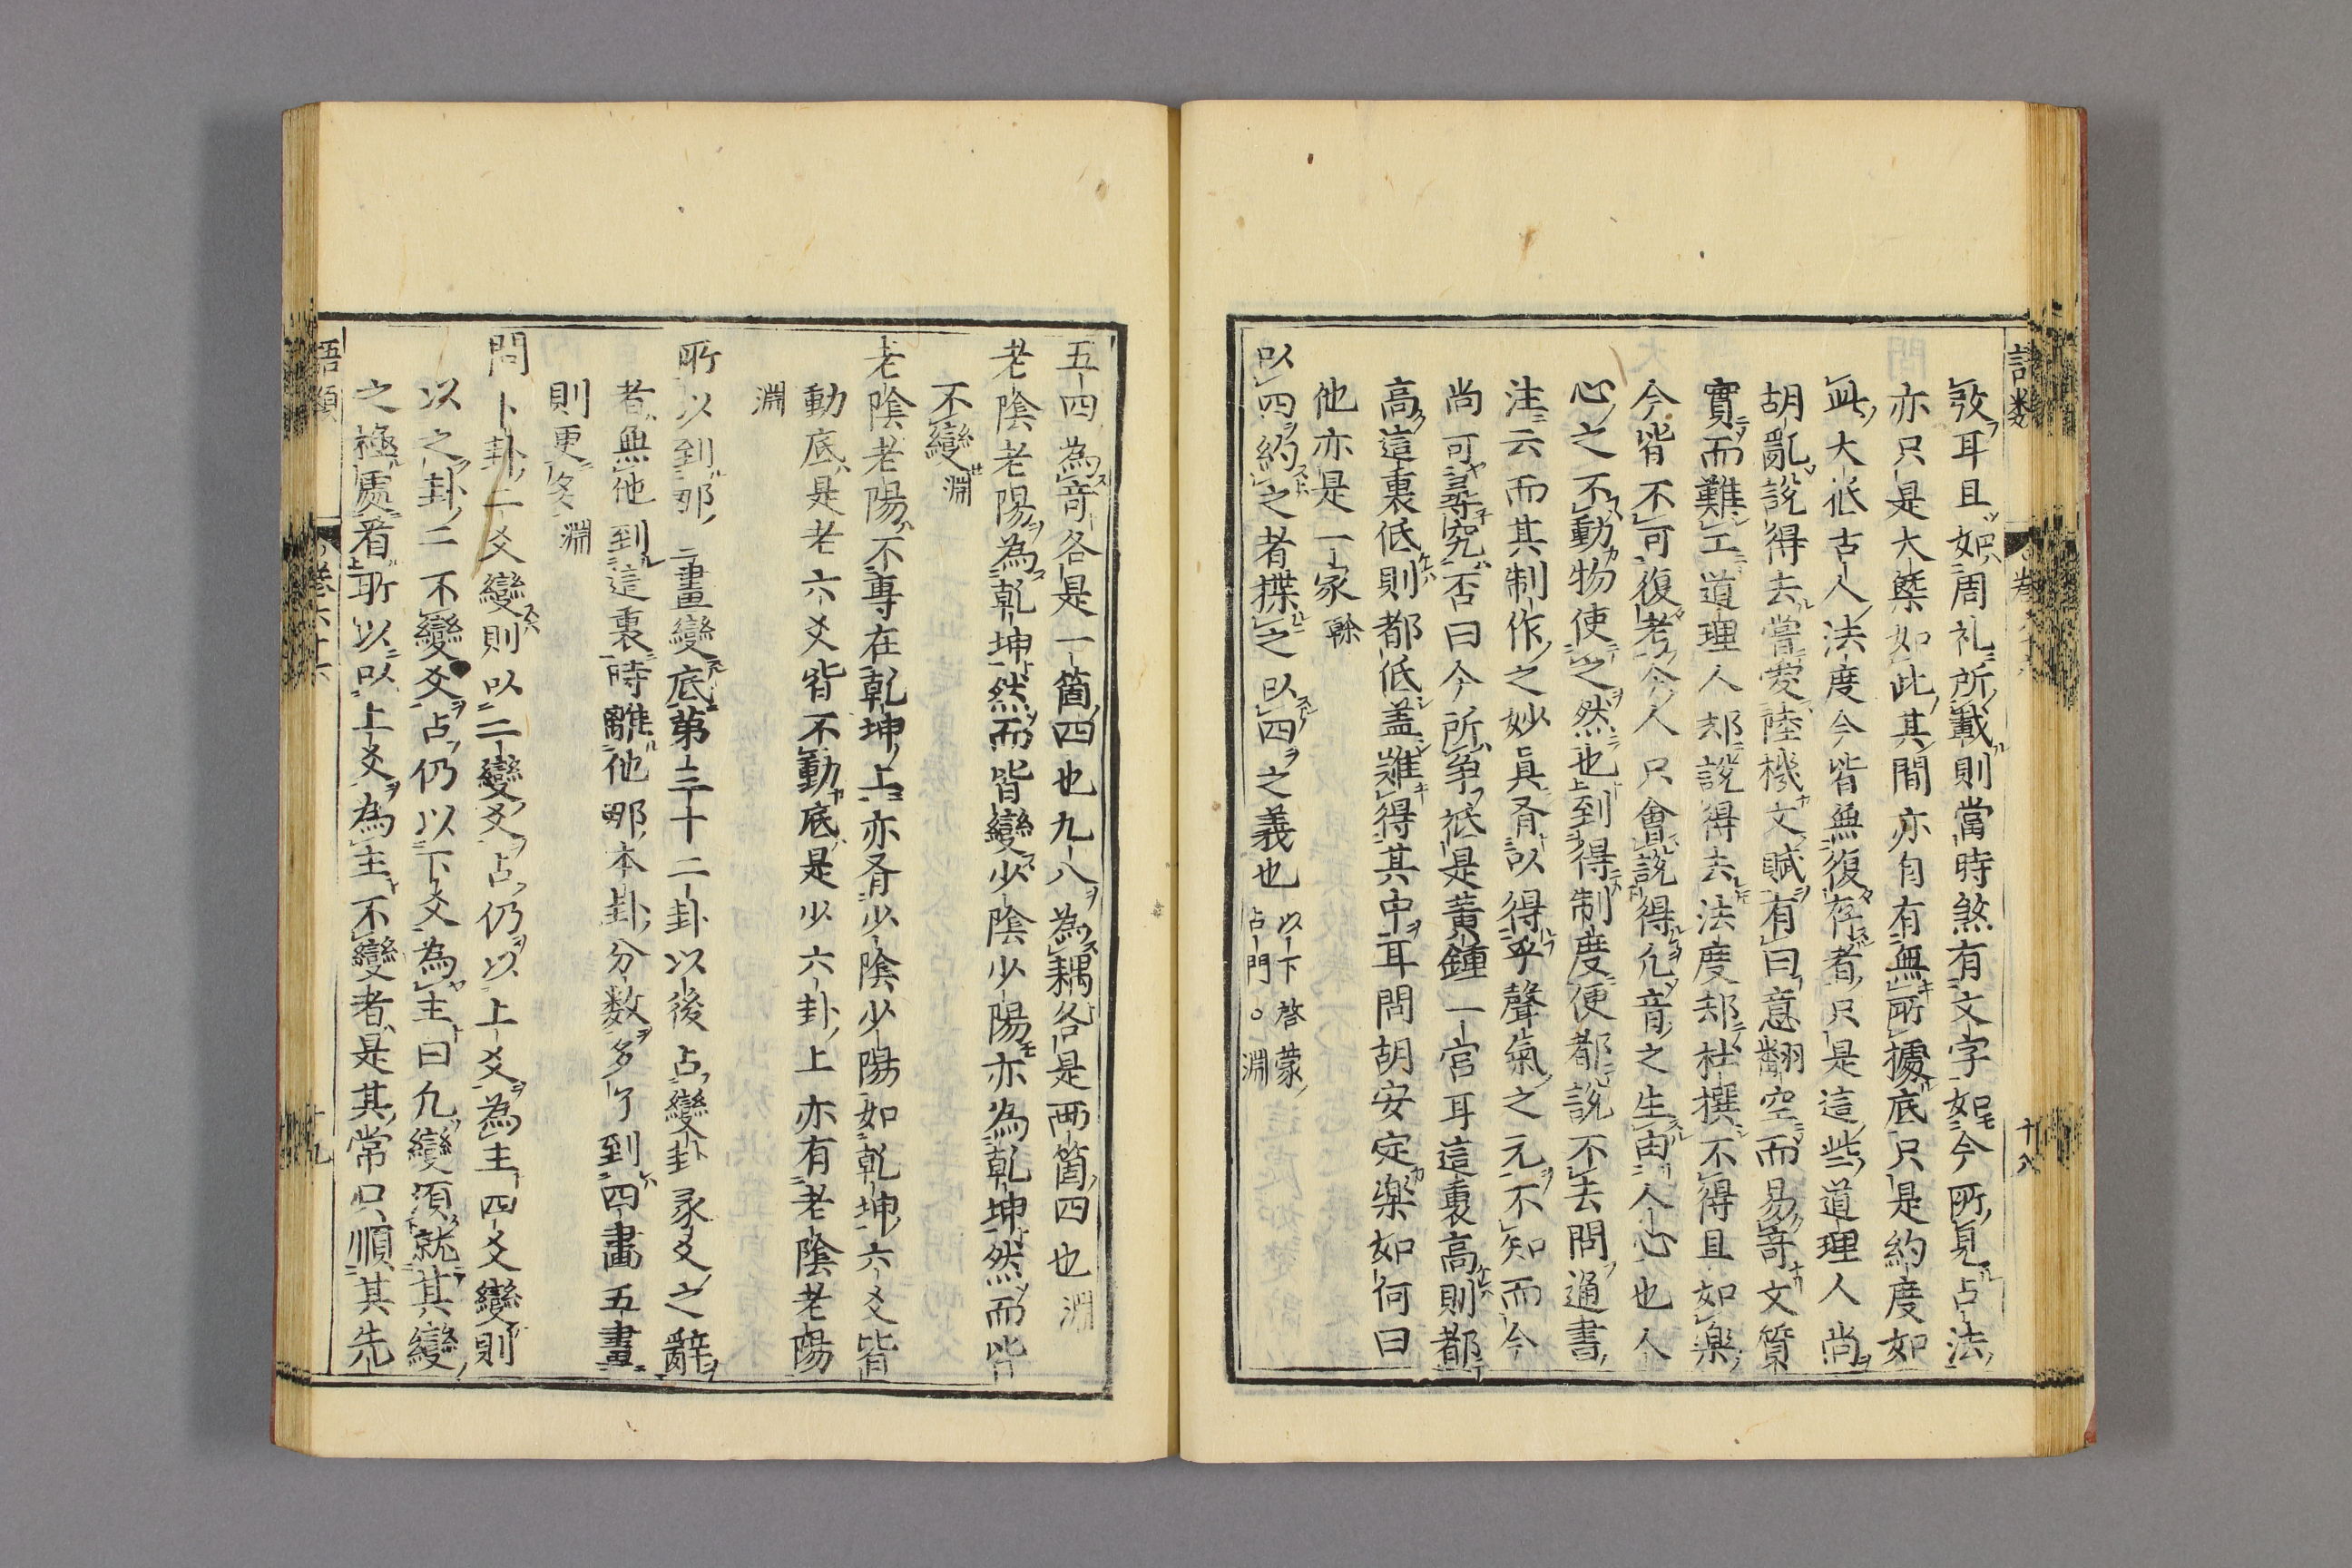 語類
卷六十六
十八
攷耳且如周礼所載則當時煞有文字如今所見占法
亦只是大槩如此其間亦自有無所據底只是約度如
此大抵古人法度今皆無復存者只是這些道理人尚
胡亂說得去嘗愛陸機文賦有曰意翻空而易奇文質
實而難工道理人却說得去法度却杜撰不得且如樂
今皆不可復考今人只會說得凢音之生由人心也人
心之不動物使之然也到得制度便都說不去問通書
注云而其制作之妙眞有以得乎聲氣之元不知而今
尚可尋究否曰今所争祗是黃鍾一宮耳這裏高則都
高這裏低則都低盖難得其中耳問胡安定樂如何曰
他亦是一家榦
以四約之者揲之以四之義也以下啓蒙占門○淵
五四為奇各是一箇四也九八為耦各是兩箇四也淵
老陰老陽為乾坤然而皆變少陰少陽亦為乾坤然而皆
不變淵
老陰老陽不專在乾坤上亦有少陰少陽如乾坤六爻皆
動底是老六爻皆不動底是少六卦上亦有老陰老陽
淵
所以到那三畫變底第三十二卦以後占變卦彖爻之辭
者無他到這裏時離他那本卦分数多了到四畫五畫
則更多淵
問卜卦二爻變則以二變爻占仍以上爻為主四爻變則
以之卦二不變爻占仍以下爻為主曰凢變須就其變
之極處看所以以上爻為主不變者是其常只順其先
語類
卷六十六
十九